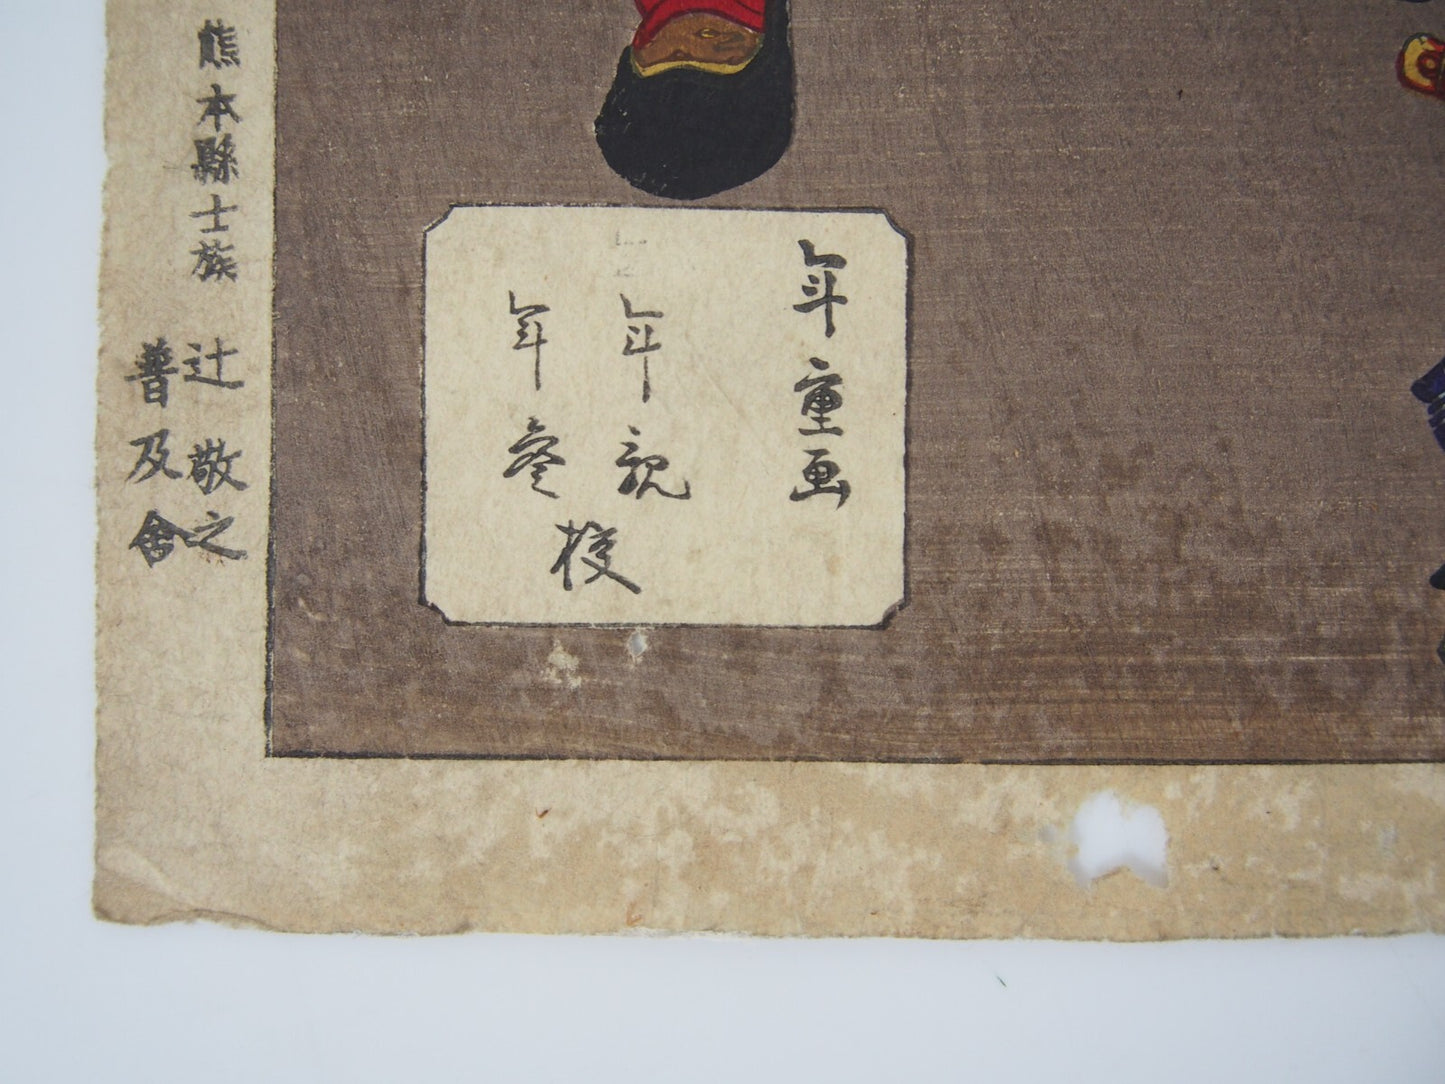 年重画
年親
年参
校
熊本縣士族
辻敬之
普及舎